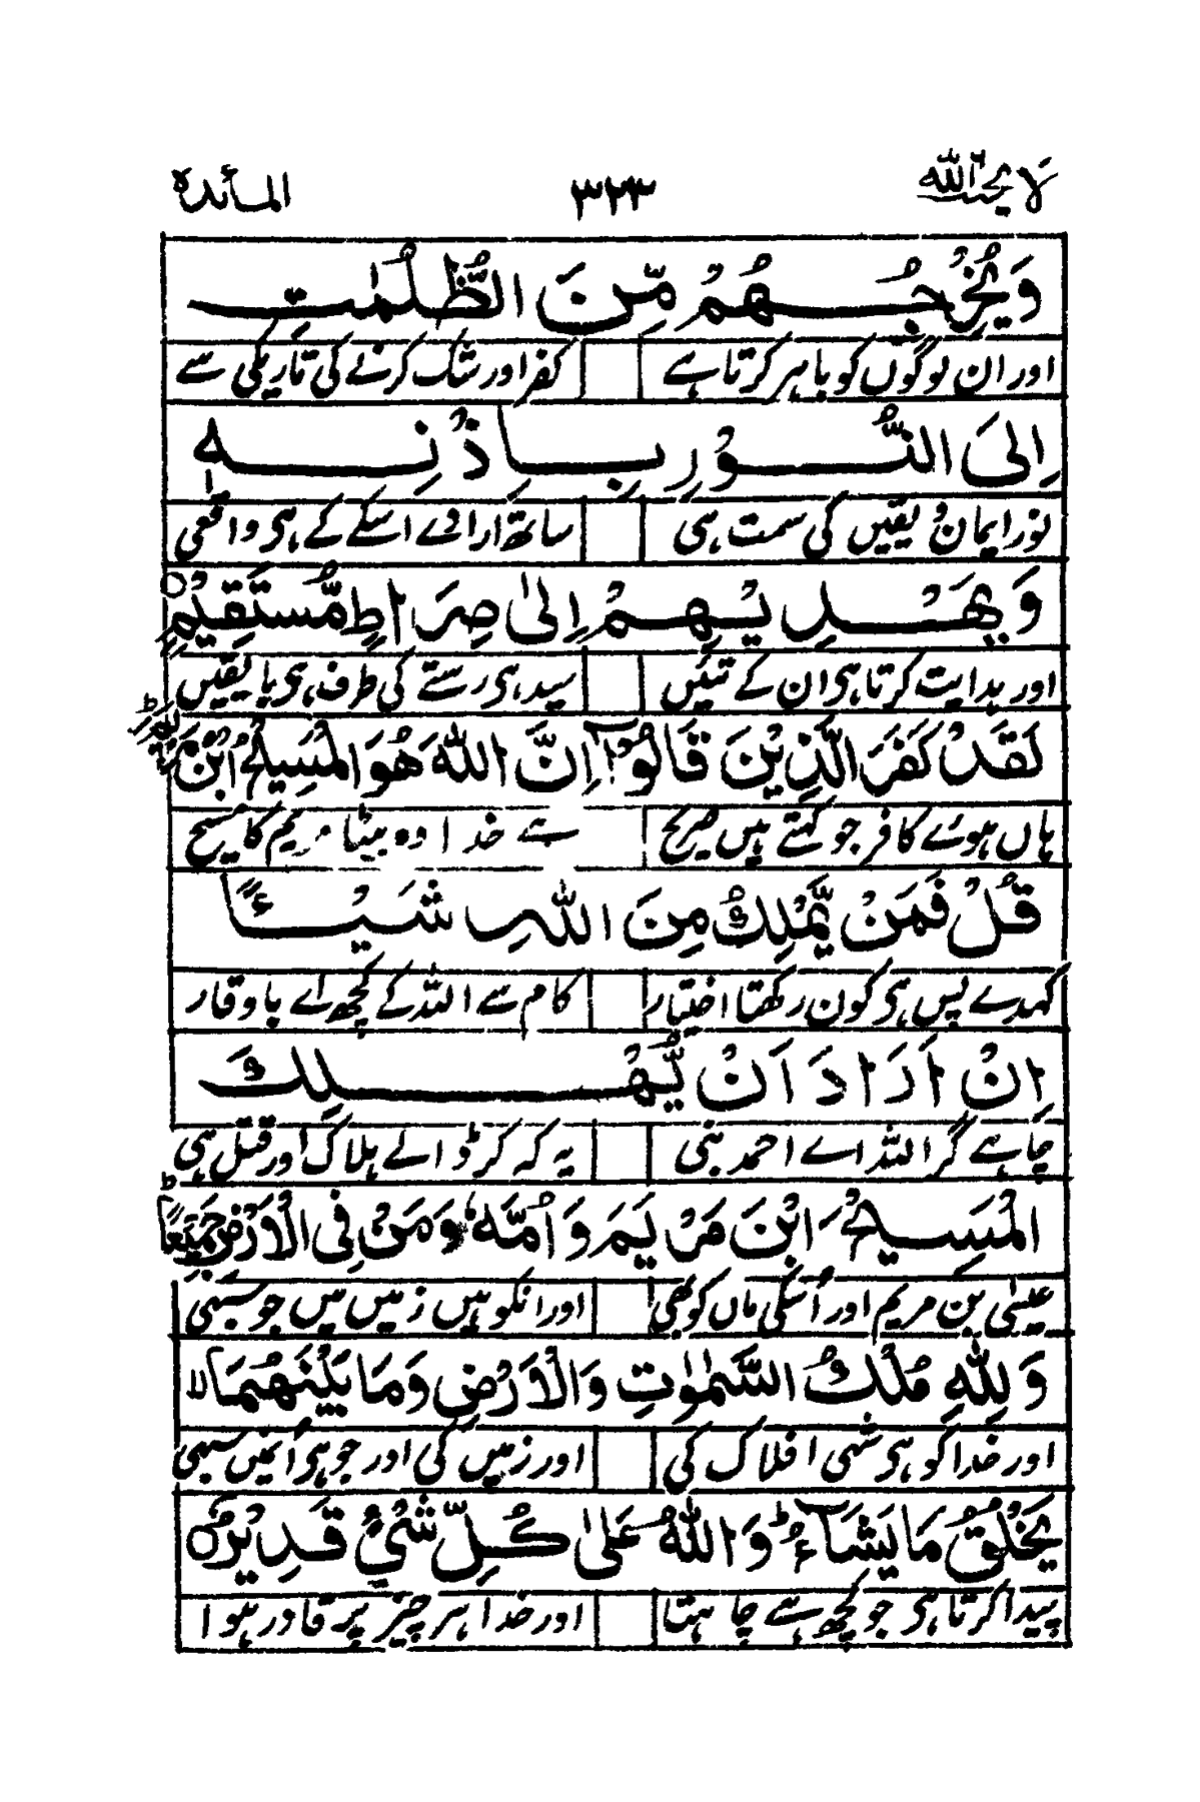 لا يحب الله ۳۲۳ المائدة
وَيُخْرِجُهُمْ مِّنَ الظُّلُمٰتِ
اور ان لوگوں کو باہر کرتا ہے کفر اور شک کرنے کی تاریکی سے
اِلَى النُّوْرِ بِاِذْنِهٖ
نور ایمان و یقیں کی سمت ہی ساتھ ارادے اسکے کے ہی واقعی
وَيَهْدِيْهِمْ اِلٰى صِرَاطٍ مُّسْتَقِيْمٍ ○
اور ہدایت کرتا ہی ان کے تئیں سیدہی رستے کی طرف ہی بایقیں
لَقَدْ كَفَرَ الَّذِيْنَ قَالُوْٓا اِنَّ اللّٰهَ هُوَ الْمَسِيْحُ ابْنُ مَرْيَمَ ؕ
ہاں ہوے کافر جو کہتے ہیں صریح ہے خدا وہ بیٹا مریم کا مسیح
قُلْ فَمَنْ يَّمْلِكُ مِنَ اللّٰهِ شَيْـًٔا
کہدے پس ہی کون رکھتا اختیار کام سے اللہ کے کچھ اے باوقار
اِنْ اَرَادَ اَنْ يُّهْلِكَ
چاہے گر اللہ اے احمد نبی یہ کہ کر ڈالے ہلاک اور قتل ہی
الْمَسِيْحَ ابْنَ مَرْيَمَ وَاُمَّهٗ وَمَنْ فِى الْاَرْضِ جَمِيْعًا ؕ
عیسٰی بن مریم اور اُسکی ماں کو بھی اور انکو ہیں زمیں میں جو سبہی
وَلِلّٰهِ مُلْكُ السَّمٰوٰتِ وَالْاَرْضِ وَمَا بَيْنَهُمَا ؕ
اور خدا کو ہی شہی افلاک کی اور زمیں کی اور جو ہی اُنمیں سبہی
يَخْلُقُ مَا يَشَآءُ ؕ وَاللّٰهُ عَلٰى كُلِّ شَىْءٍ قَدِيْرٌ ○
پیدا کرتا ہی جو کچھ ہے چاہتا اور خدا ہر چیز پر قادر ہوا